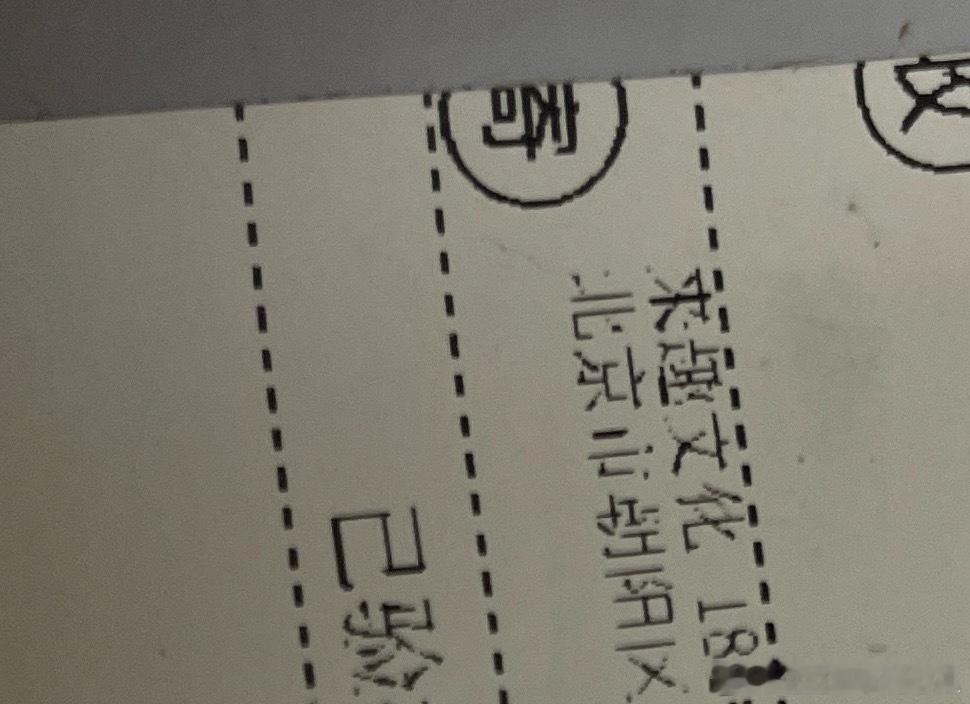 收
寄
来趣文化 18
北京市朝阳区
已验